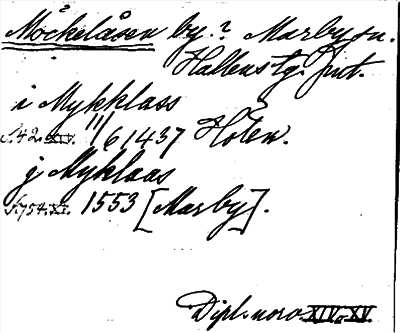 Mockelåsen by.? Marby sn.
Hallens tg. Jmt.
i Mykklass
S.42. XIV. 11/6 1437 Hoten.
j Myklaas
S.754. XV. 1553 [Marby].
Dipl. norv. XIV o XV.